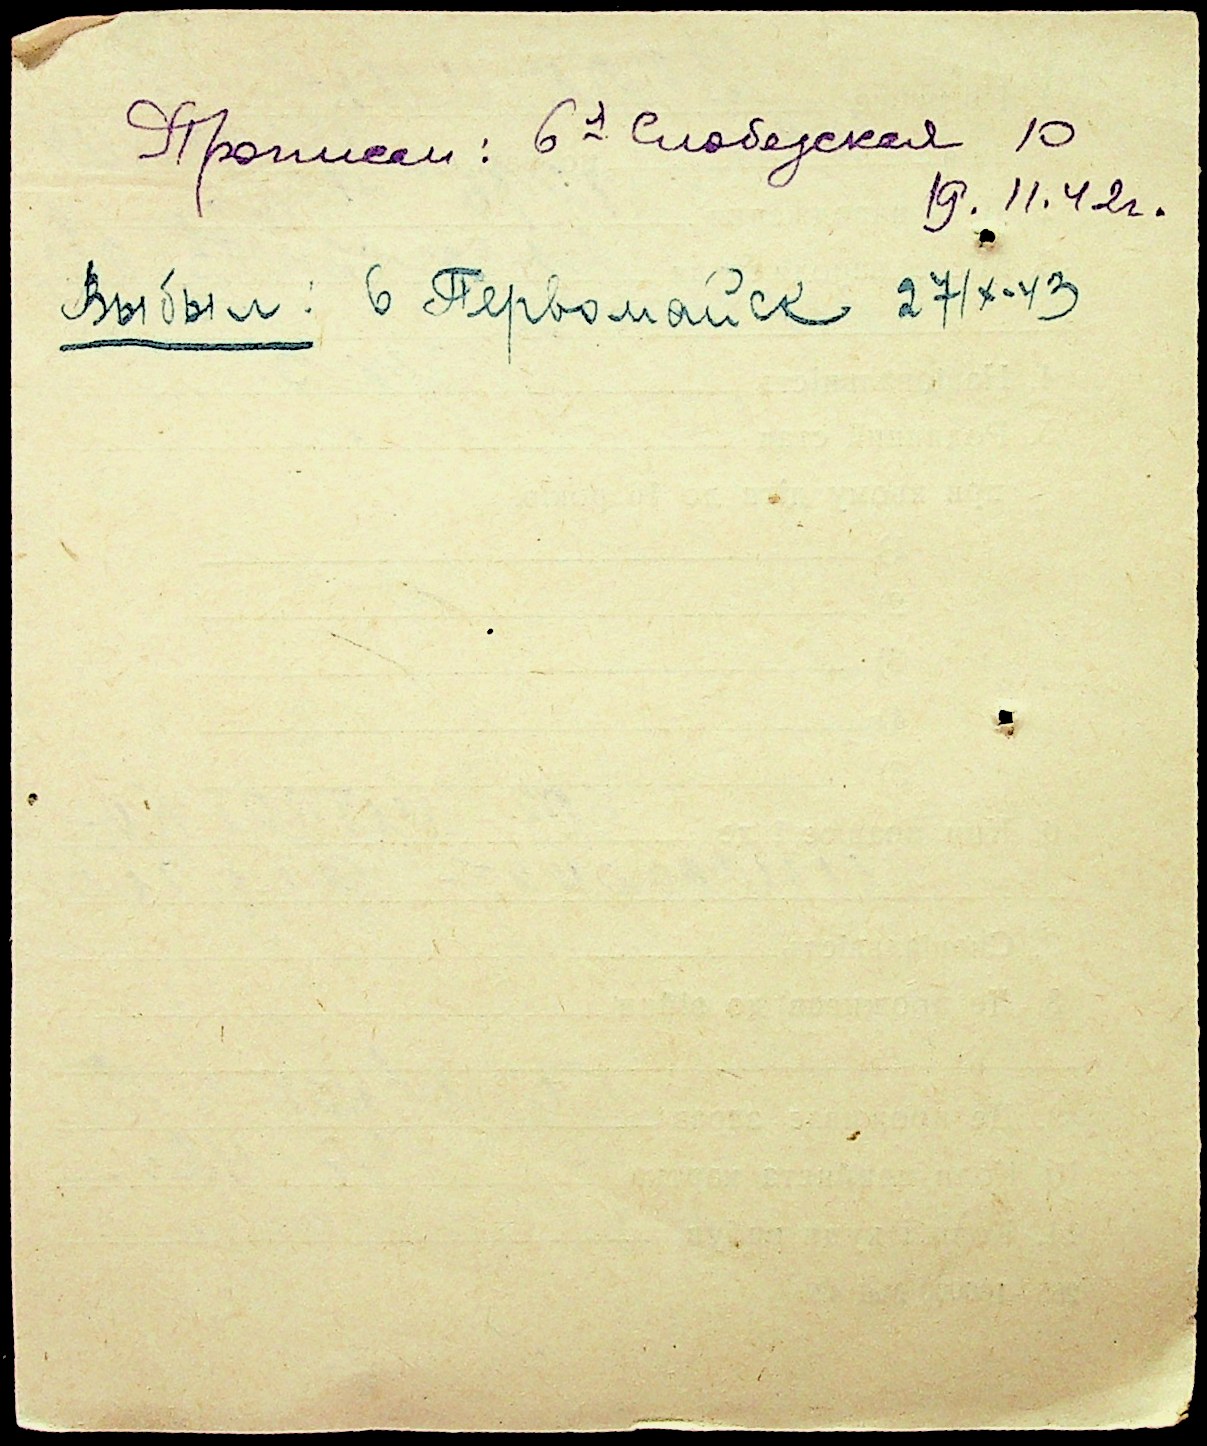 Прописан: 6я Слободская 10
19.11.42г.
Выбыл: в Первомайск 27/X-43